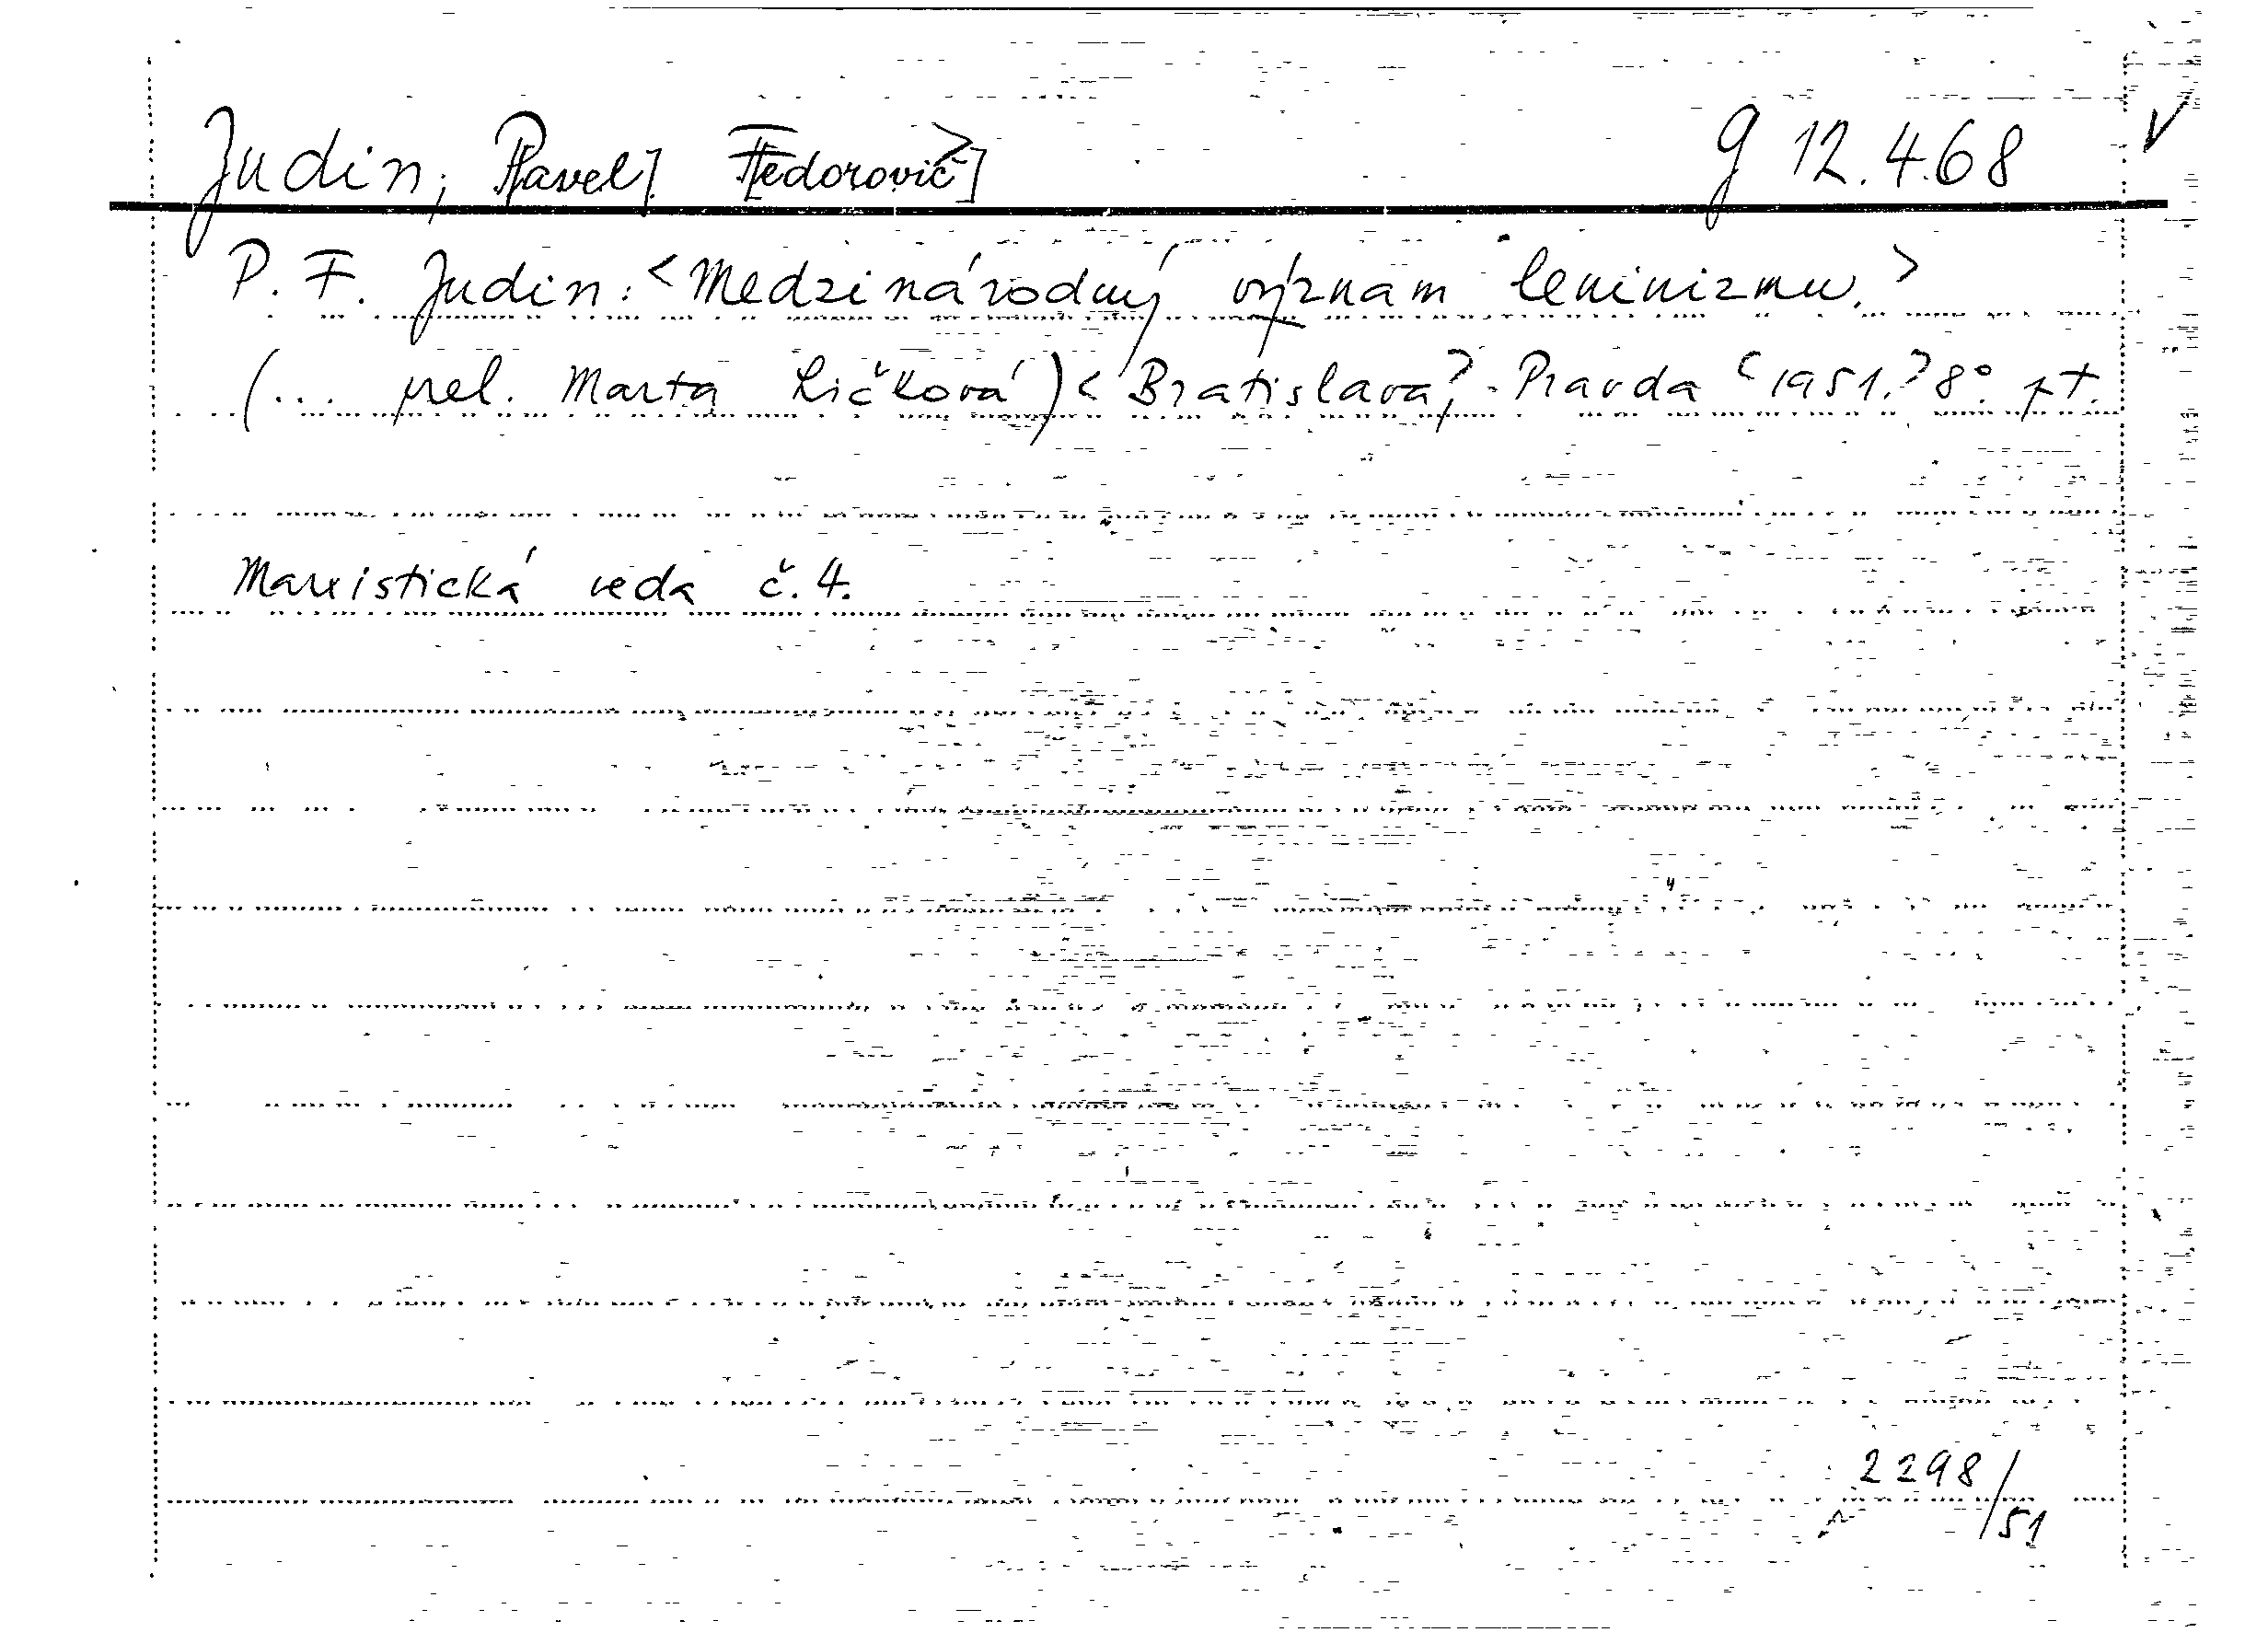 Judin, P[avel]. F[edorovič]> g 12.468 V
P. F. Judin: <Medzinárodný význam leninizmu.>
(... prel. Marta Ličková) <Bratislava,> Pravda <1951.> 8°. pt.
Marxistická veda č. 4.
2298/51